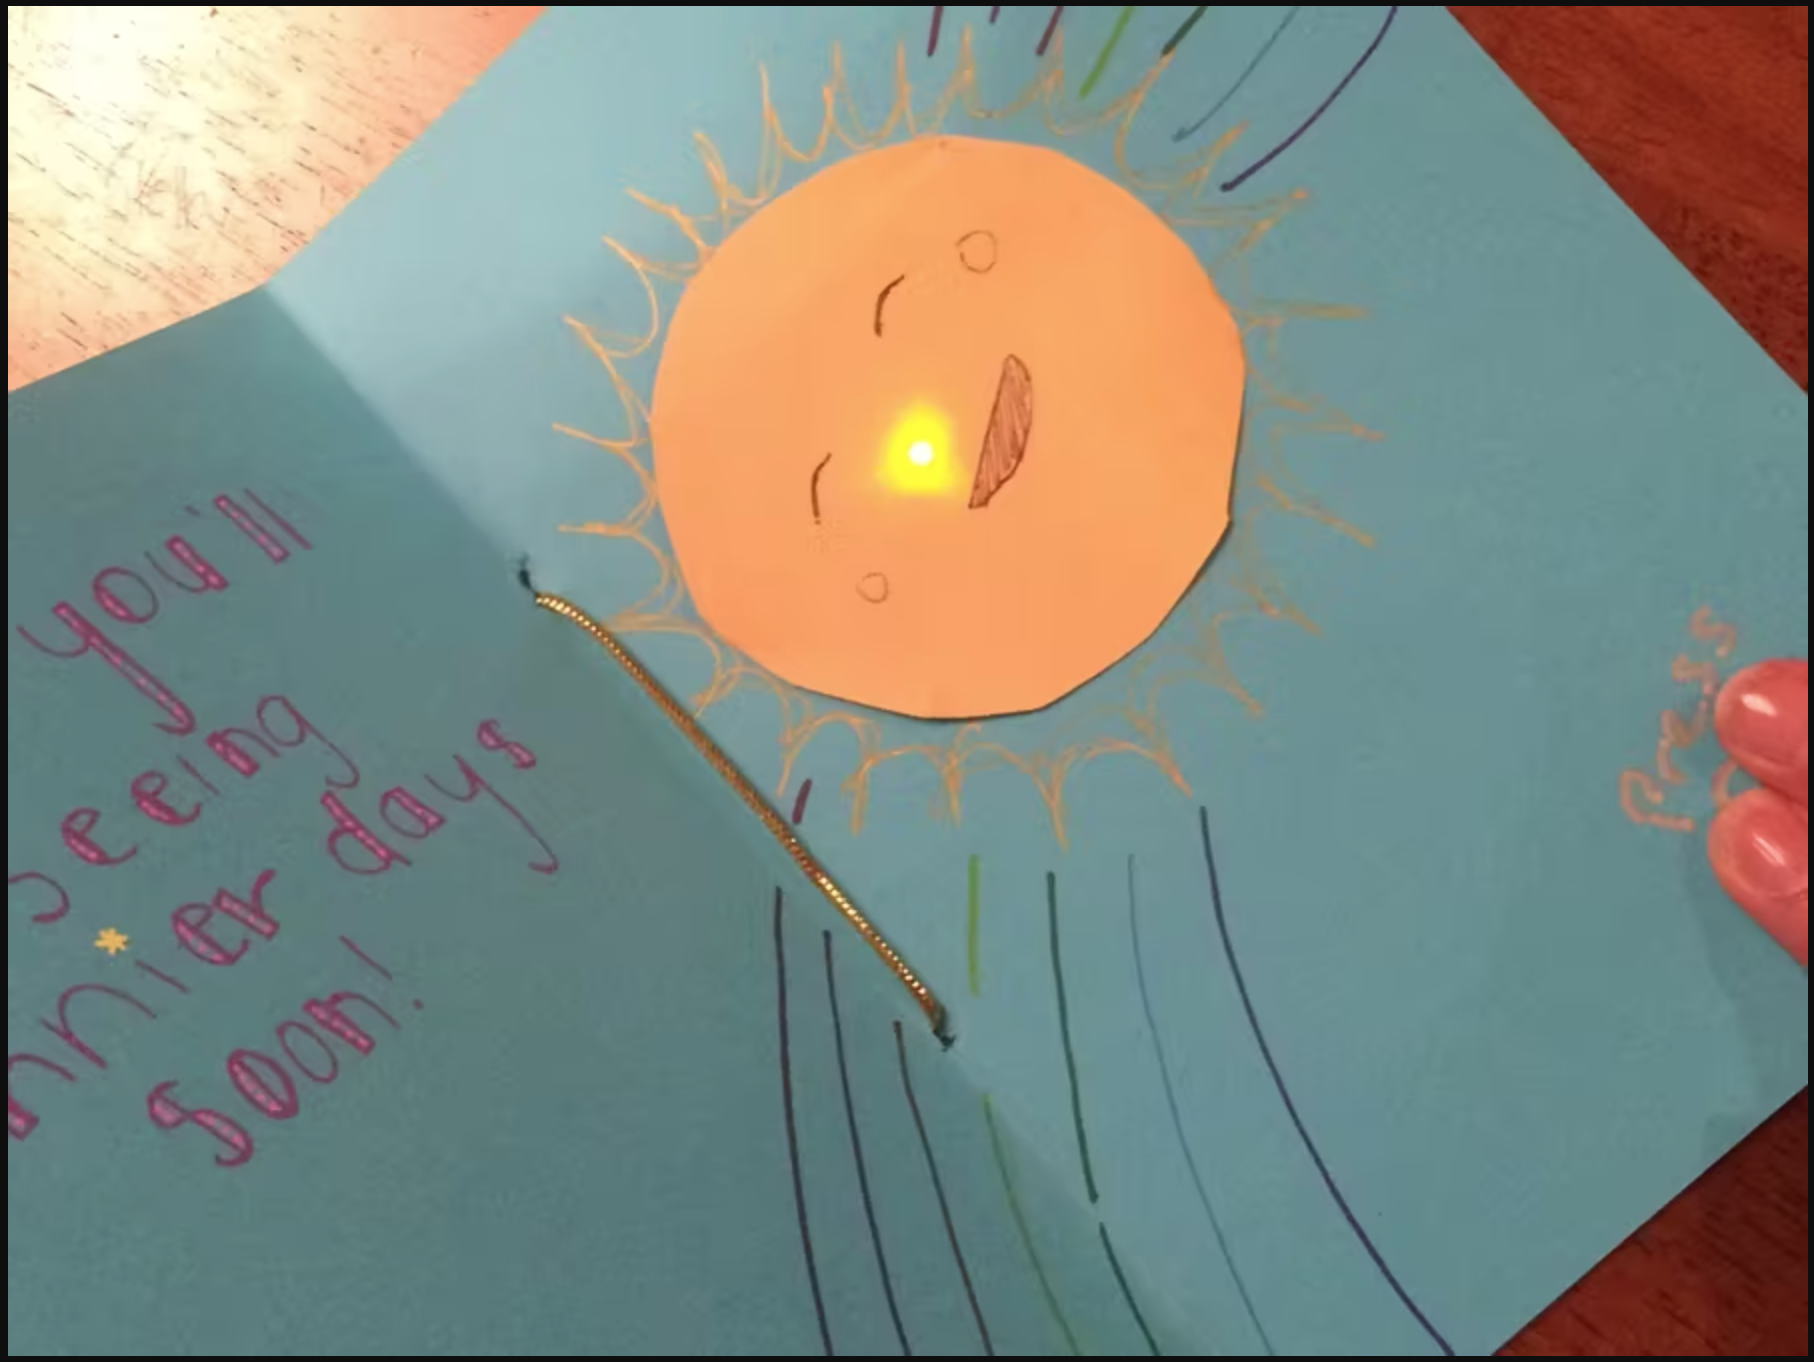 you'll
seeing
days
soon!
Press